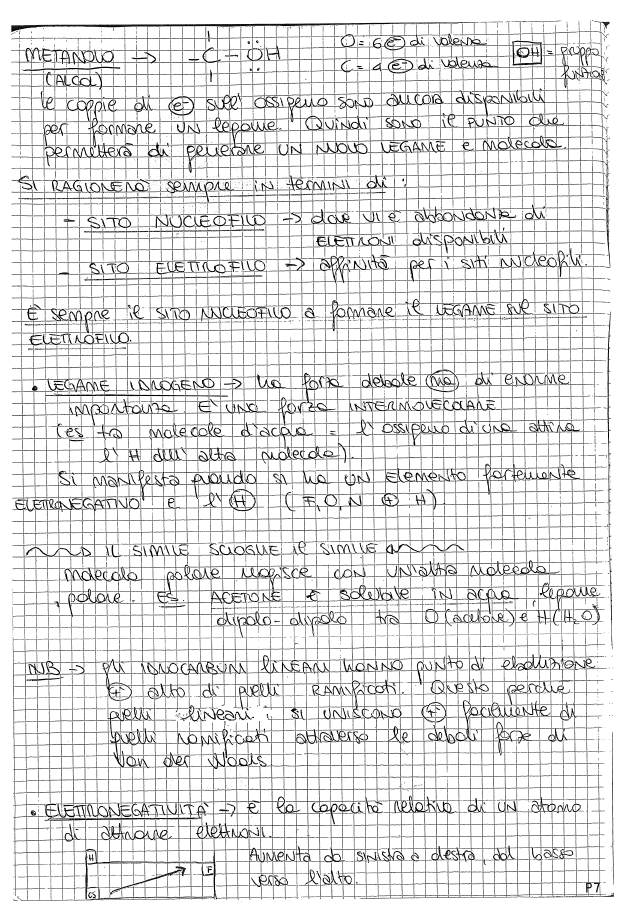 METANOLO → -C-ÖH O = 6 e⁻ di valenza OH = gruppo
(ALCOL) C = 4 e⁻ di valenza funzionale
le coppie di e⁻ sull' ossigeno sono ancora disponibili
per formare UN legame. Quindi sono il PUNTO che
permetterà di generare UN NUOVO LEGAME e molecola.
SI RAGIONERÀ sempre in termini di :
- SITO NUCLEOFILO → dove VI È abbondanza di
ELETTRONI disponibili
- SITO ELETTROFILO → affinità per i siti nucleofili.
È sempre il SITO NUCLEOFILO a formare il LEGAME sul SITO
ELETTROFILO.
• LEGAME IDROGENO → ha forza debole ma di enorme
importanza È UNA forza INTERMOLECOLARE
(es tra molecole d'acqua = l'ossigeno di una attira
l'H dell'altra molecola).
Si manifesta quando si ha UN Elemento fortemente
ELETTRONEGATIVO e l' H (F, O, N + H)
IL SIMILE SCIOGLIE il SIMILE
molecola polare reagisce con UN'altra molecola
polare. ES. ACETONE È solubile IN acqua, legame
dipolo-dipolo tra O (acetone) e H (H₂O)
NB → gli IDROCARBURI lINEARI HANNO punto di ebollizione
+ alto di quelli RAMIFICATI. Questo perché
quelli lineari si UNISCONO + facilmente di
quelli ramificati attraverso le deboli forze di
Van der Waals
• ELETTRONEGATIVITÀ → è la capacità relativa di UN atomo
di attrarre elettroni.
H F Aumenta da sinistra a destra, dal basso
CS verso l'alto.
P7